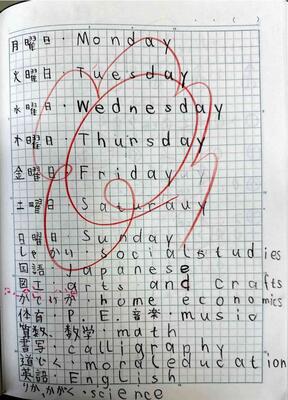 月曜日・Monday
火曜日・Tuesday
水曜日・Wednesday
木曜日・Thursday
金曜日・Friday
土曜日・Saturday
日曜日・Sunday
しゃかい・social studies
国語・Japanese
図工・arts and crafts
かていか・home economics
体育・P.E. 音楽・music
算数、数学・math
書写・calligraphy
道とく・moral education
英語・English
りか、かがく・science